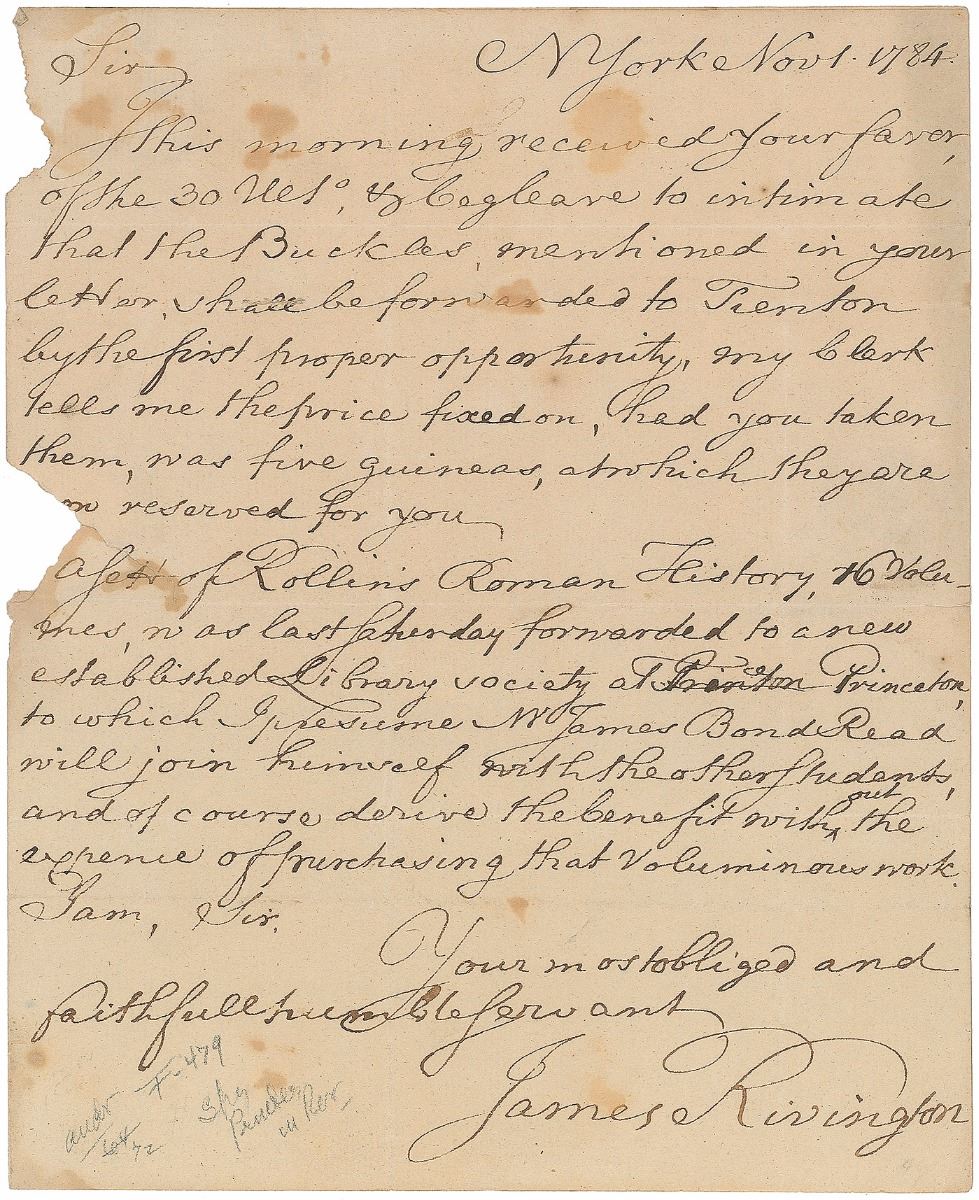 N York Nov 1. 1784.
Sir
I this morning received your favor,
of the 30 Ult°, & beg leave to intimate
that the Buckles, mentioned in your
letter, shall be forwarded to Trenton
by the first proper opportunity, my Clerk
tells me the price fixed on, had you taken
them, was five guineas, at which they are
reserved for you
A Sett of Rollin's Roman History, 16 Volu-
mes, was last Saturday forwarded to a new
established Library society at Trenton Princeton,
to which I presume Mr James Bond Read
will join himself with the other Students,
and of course derive the benefit with^out the
expence of purchasing that Voluminous work.
I am, Sir,
Your most obliged and
faithfull humble Servant
James Rivington
andr F-479
64/72
Spy
Printer
in Rev